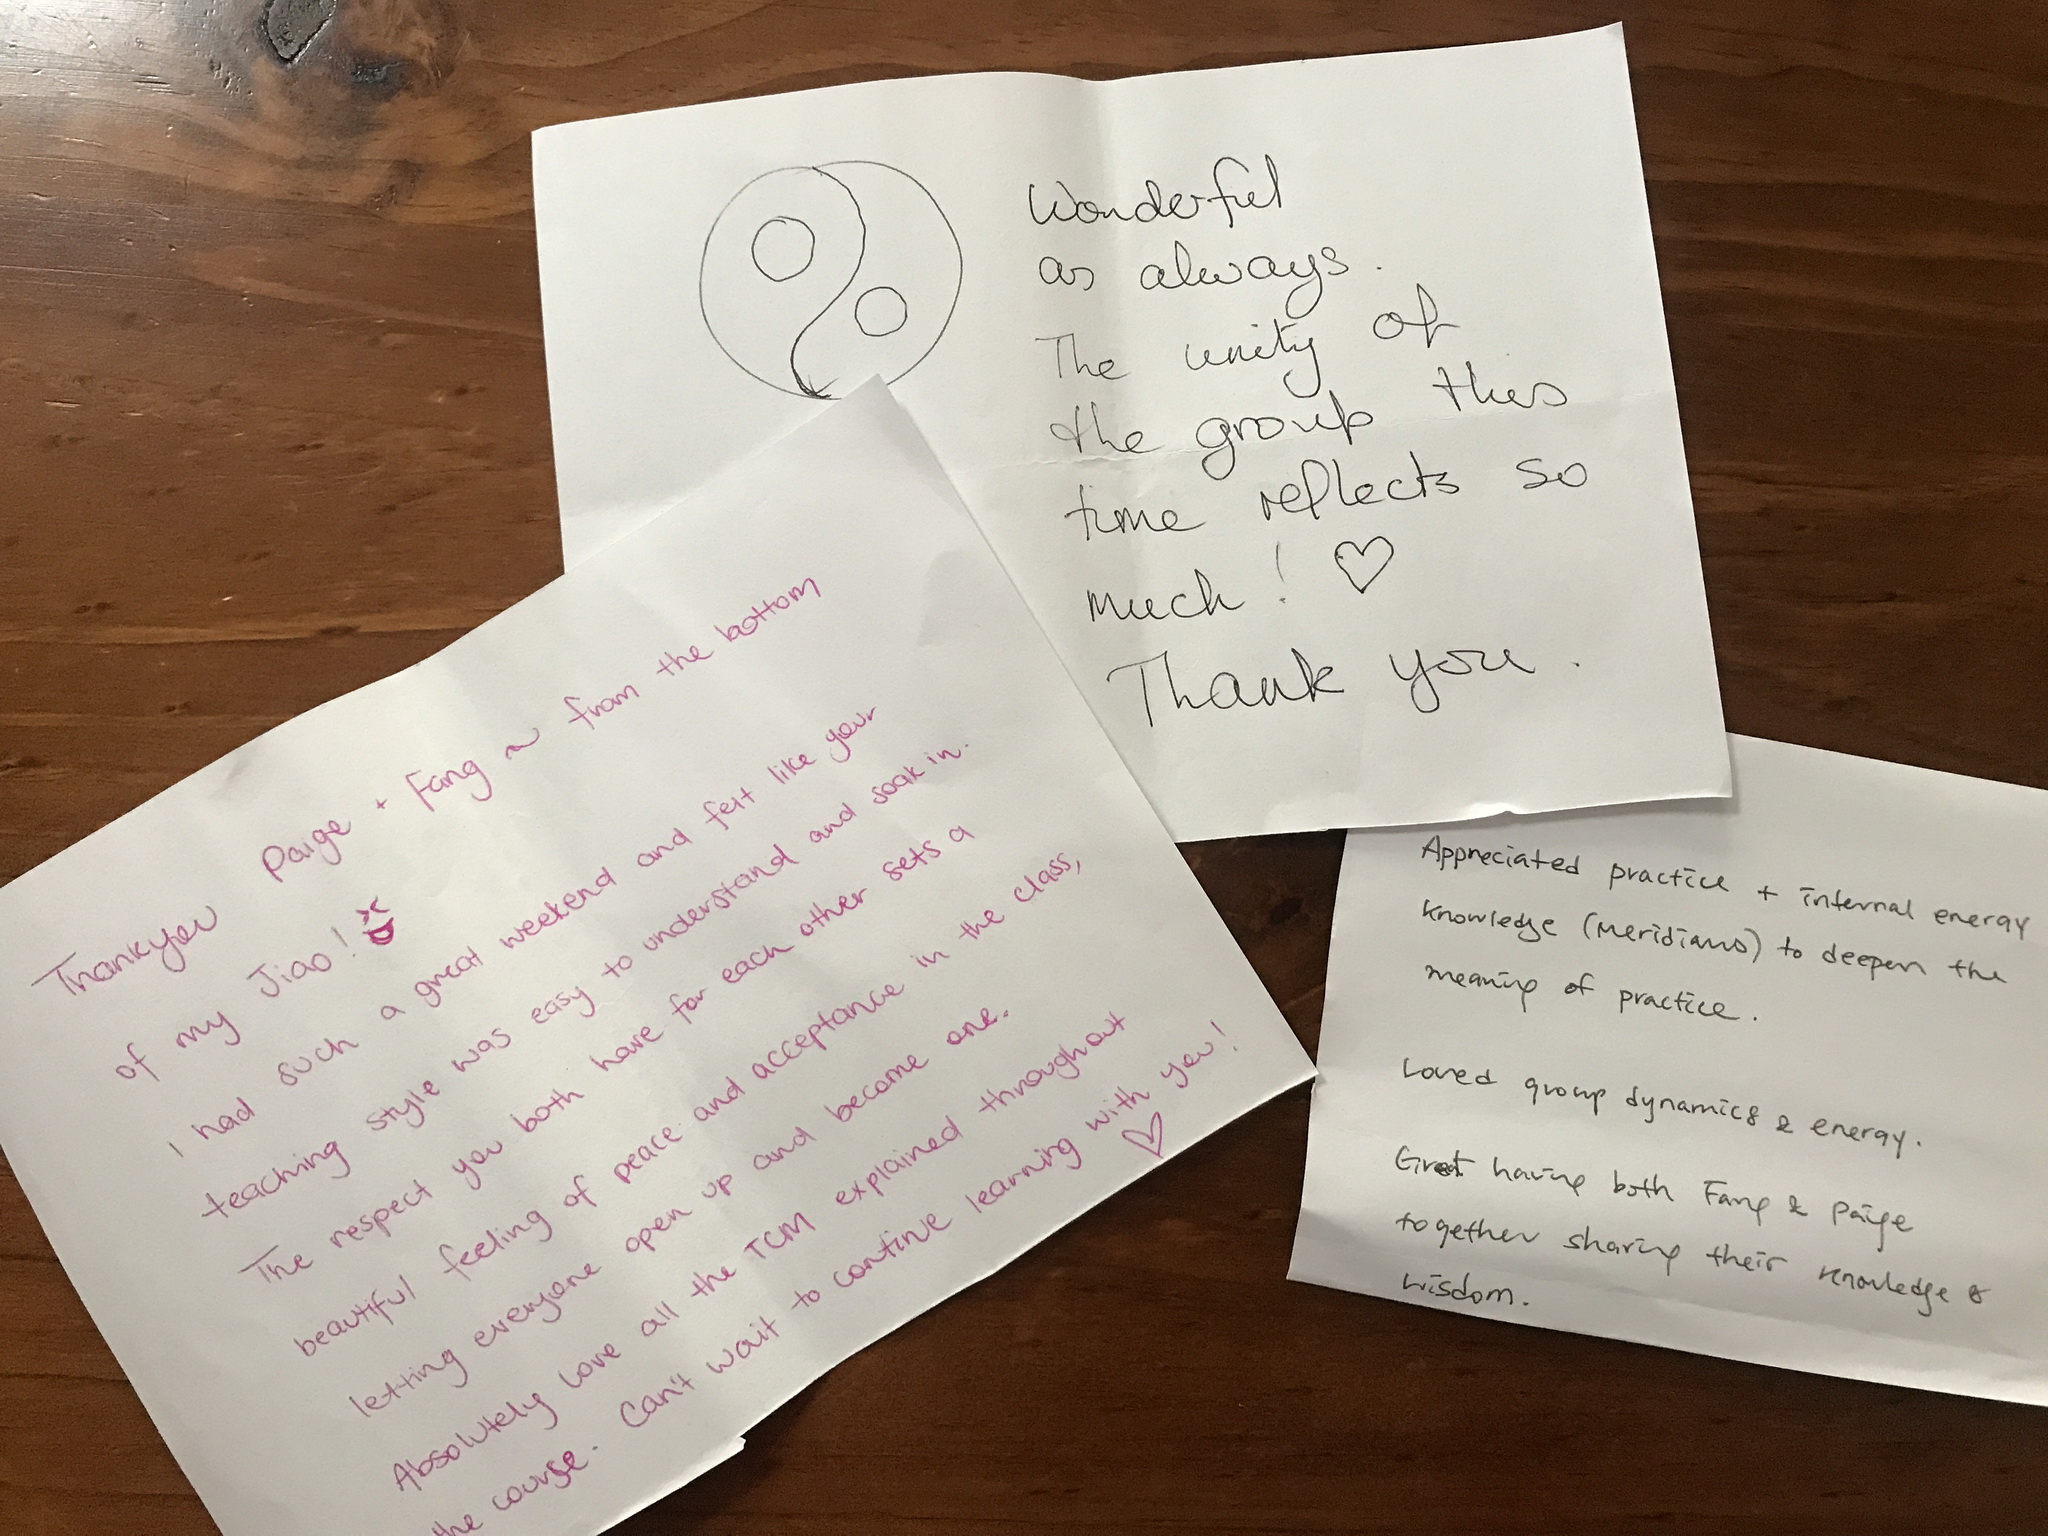 Wonderful
as always.
The unity of
the group this
time reflects so
much! ♡
Thank you.
Thankyou Paige + Fang ~ from the bottom
of my Jiao!
I had such a great weekend and felt like your
teaching style was easy to understand and soak in.
The respect you both have for each other sets a
beautiful feeling of peace and acceptance in the class,
letting everyone open up and become one.
Absolutely love all the TCM explained throughout
the course. Can't wait to continue learning with you!
♡
Appreciated practice + internal energy
knowledge (meridians) to deepen the
meaning of practice.
Loved group dynamics & energy.
Great having both Fang & Paige
together sharing their knowledge &
wisdom.